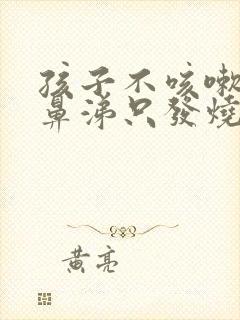 孩子不咳嗽
鼻涕只發燒
黃亮